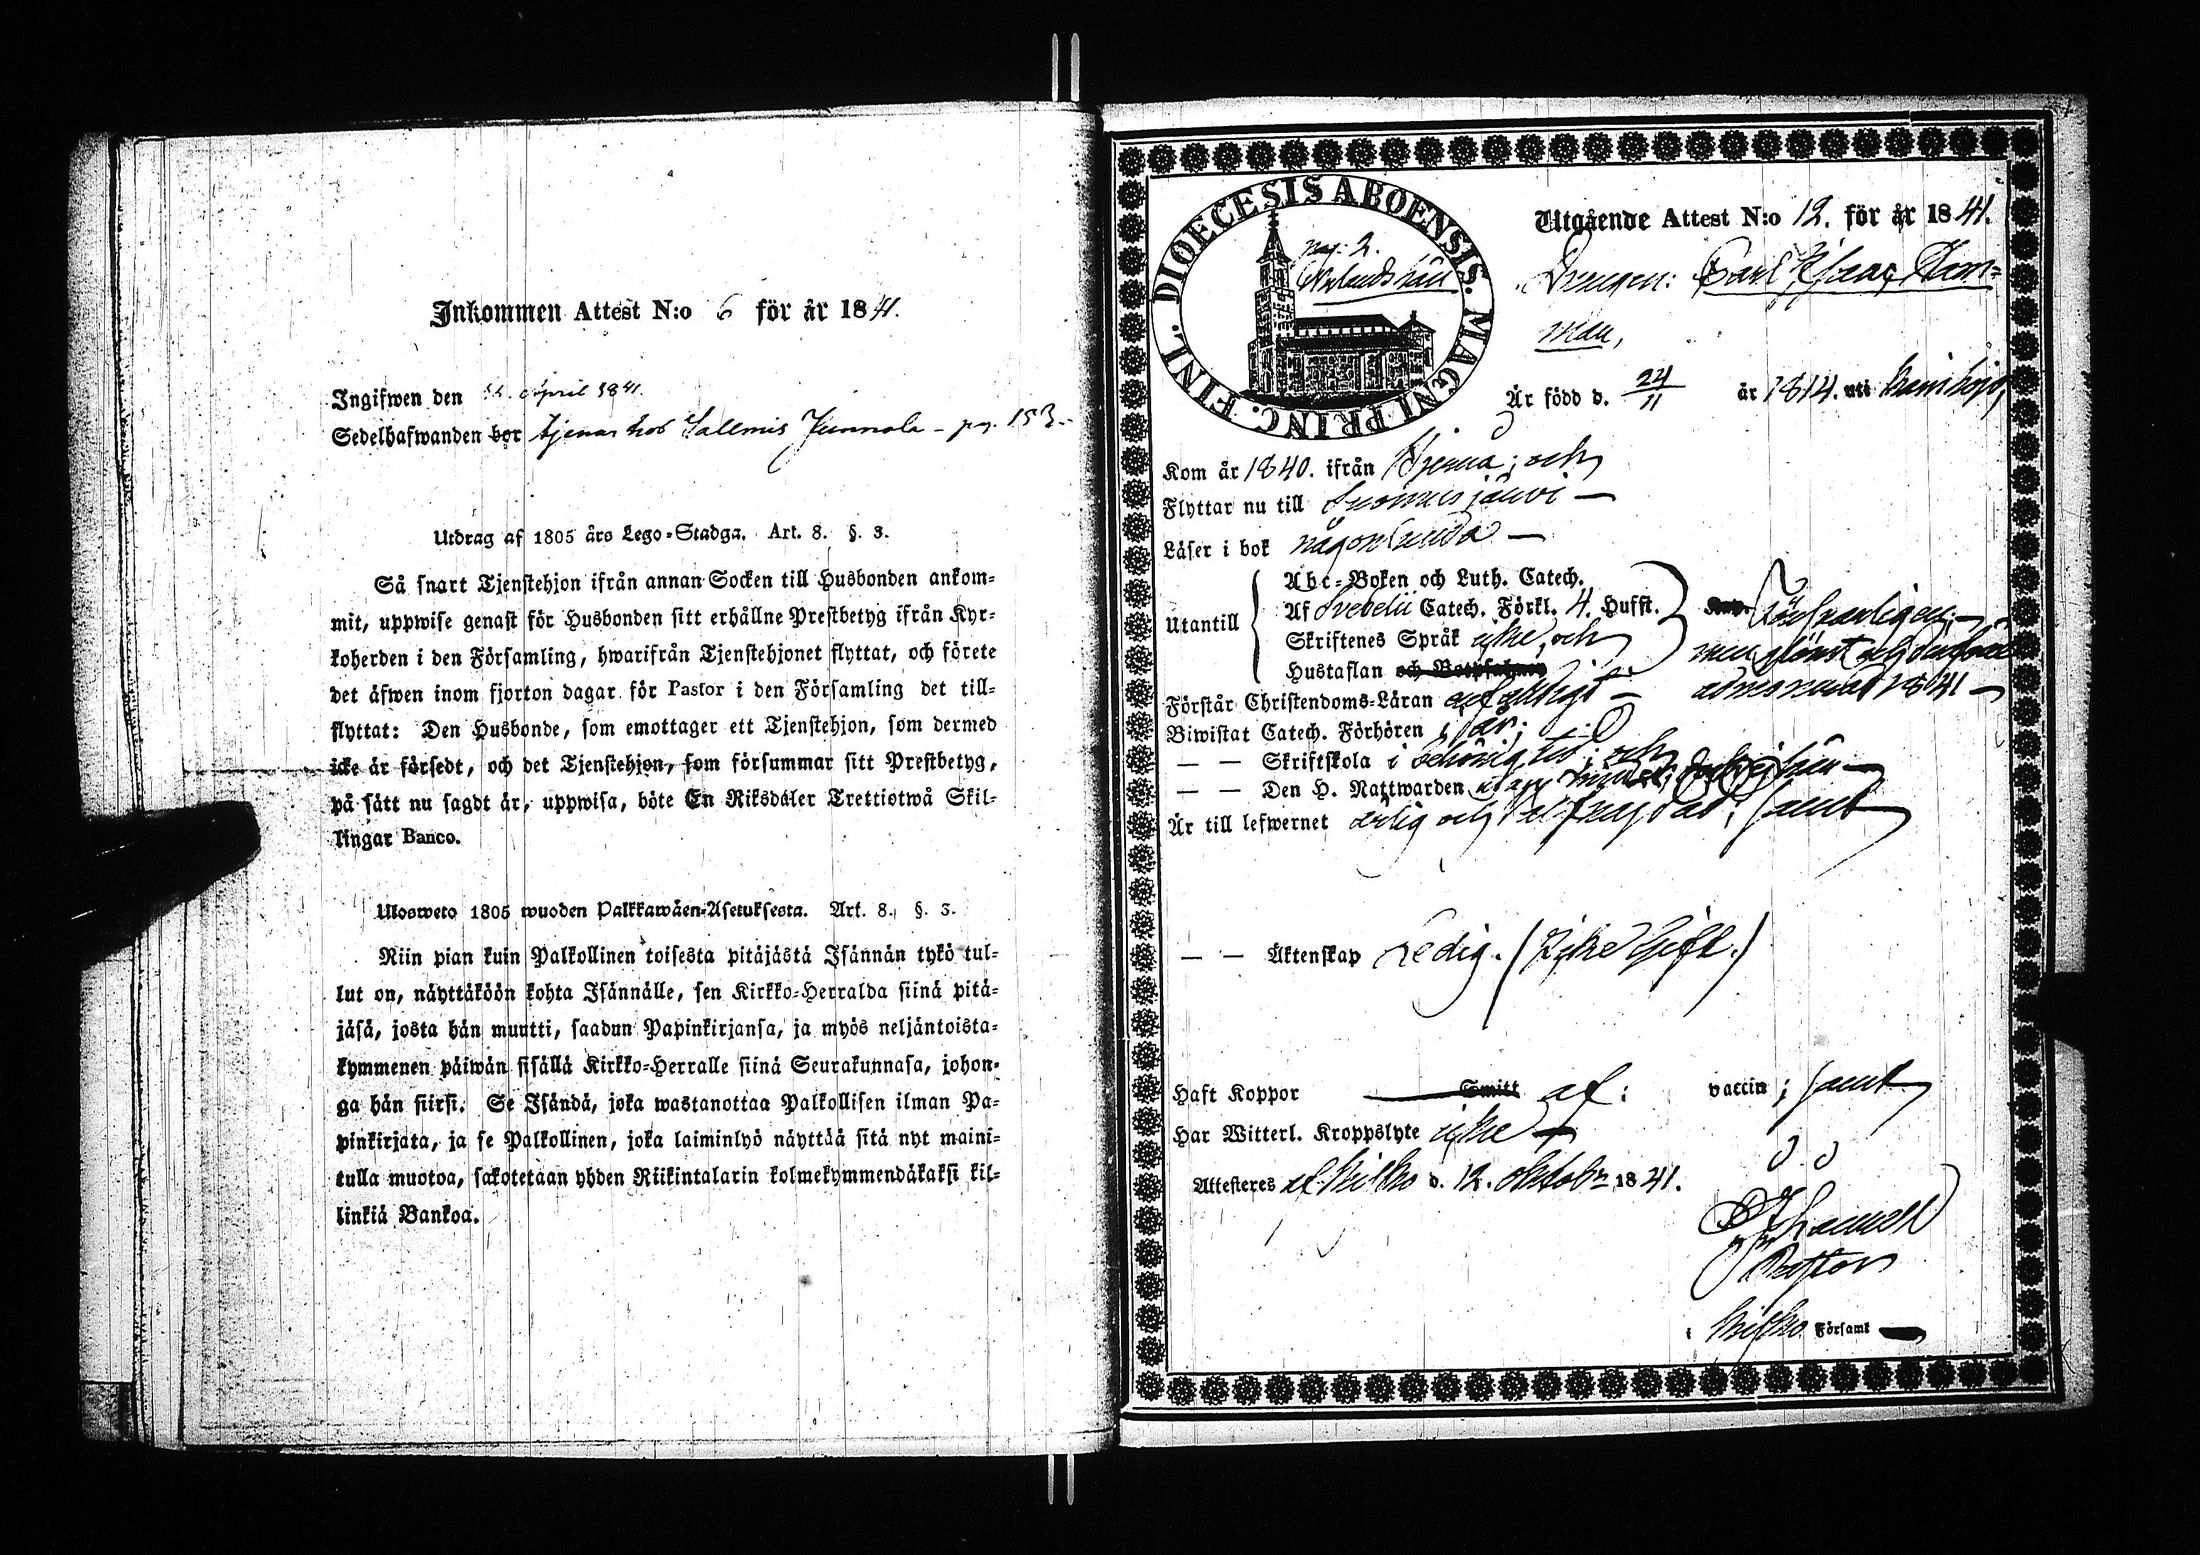 Inkommen Attest N:o 6 för år 1841.
Ingifwen den April 1841.
Sedelhafwanden bor tjenar hos Sallmis Junnola - pag. 153.
Utdrag af 1805 års Lego-Stadga. Art. 8. §. 3.
Så snart Tjenstehjon ifrån annan Socken till Husbonden ankom-
mit, uppwise genast för Husbonden sitt erhållne Prestbetyg ifrån Kyr-
koherden i den Församling, hwarifrån Tjenstehjonet flyttat, och förete
det äfwen inom fjorton dagar för Pastor i den Församling det till-
flyttat: Den Husbonde, som emottager ett Tjenstehjon, som dermed
icke är försedt, och det Tjenstehjon, som försummar sitt Prestbetyg,
på sätt nu sagdt är, uppwisa, böte En Riksdaler Trettiotwå Skil-
lingar Banco.
Ulosweto 1805 wuoden Palkkawäen-Asetuksesta. Art. 8., §. 3.
Niin pian kuin Palkollinen toisesta pitäjästä Isännän tykö tul-
lut on, näyttäköön kohta Isännälle, sen Kirkko-Herralda siinä pitä-
jäsä, josta hän muutti, saadun Papinkirjansa, ja myös neljäntoista-
kymmenen päiwän sisällä Kirkko-Herralle siinä Seurakunnasa, johon-
ga hän siirsi. Se Isändä, joka wastanottaa Palkollisen ilman Pa-
pinkirjata, ja se Palkollinen, joka laiminlyö näyttää sitä nyt maini-
tulla muotoa, sakotetaan yhden Riikintalarin kolmekymmendäkaksi kil-
linkiä Bankoa.
DIOECESIS ABOENSIS. MAGNI PRINC. FINL.
pag: 2.
Utgående Attest N:o 12. för år 1841.
Drengen: Carl Isaac
man,
Är född d. 24/11 år 1814. uti
Kom år 1840. ifrån Bjerna; och
Flyttar nu till Suomusjärvi —
Läser i bok någorlunda —
Utantill
Abc-Boken och Luth. Catech.
Af Svebelii Catech. Förkl. 4. Hufst.
Skriftenes Språk icke, och
Hustaflan och Botpsalmen
Försvarligen,
1841 —
Förstår Christendoms-Läran enfaldigt —
Biwistat Catech. Förhören i år;
— — Skriftskola i behörig tid; och
— — Den H. Nattwarden
Är till lefwernet ärlig och välfrejdad; samt
— — Äktenskap Ledig. (Icke Gift.)
Haft Koppor Smitt af: vaccin; samt
Har Witterl. Kroppslyte icke
Attesteres af Kisko d. 12. oktober 1841.
Pastor
i Kisko Församl